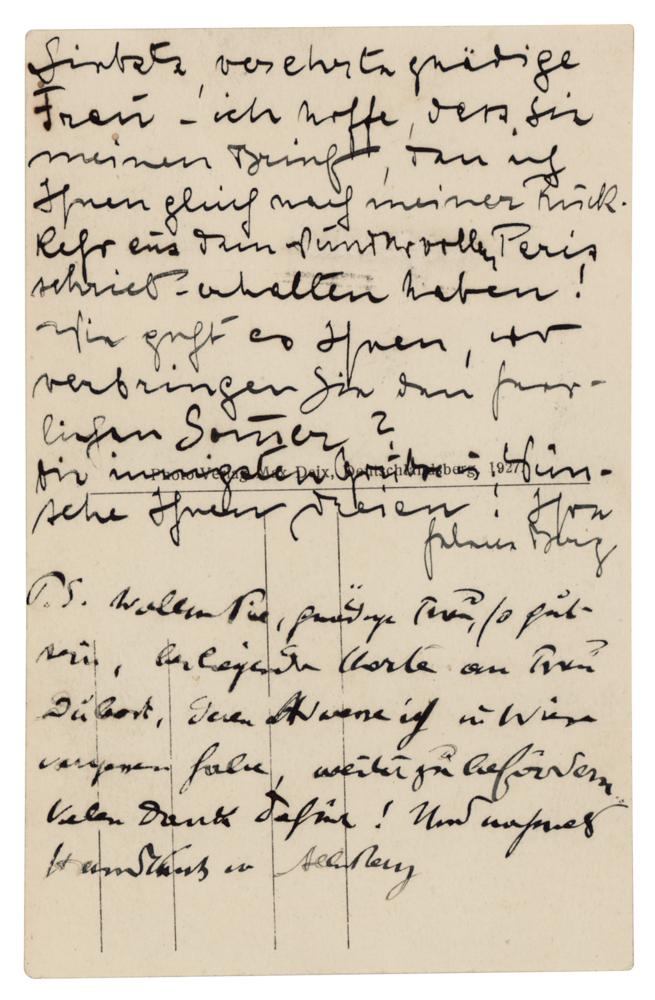 Liebste, verehrte gnädige
Frau – ich hoffe, dass Sie
meinen Brief, den ich
Ihnen gleich nach meiner Rück-
kehr aus dem wundervollen Paris
schrieb – erhalten haben!
Wie geht es Ihnen, wo
verbringen Sie den herr-
lichen Sommer?
Die innigsten Grüße Wün-
Photo-Verlag Max Deix, Deutschlandsberg, 1927
sche Ihnen Dreien! Ihre
Helene Berg
P.S. Wollen Sie, gnädige Frau, so gut
sein, beiliegende Karte an Frau
Dubost, deren Adresse ich in Wien
vergessen habe, weiter zu befördern
Vielen Dank dafür! Und
Handkuss v Alb Berg